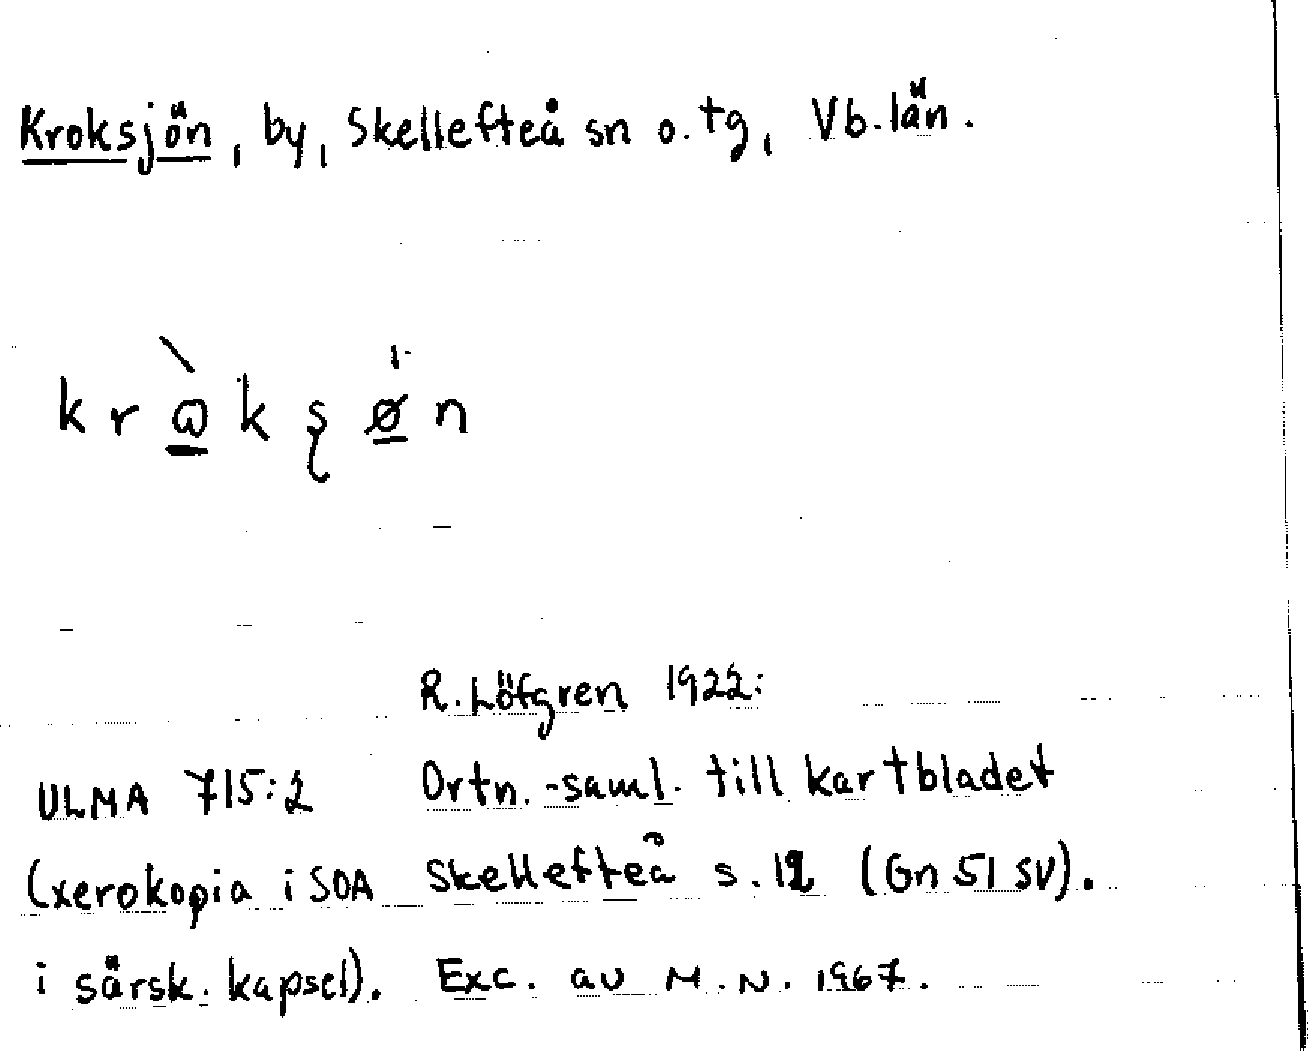 Kroksjön, by, Skellefteå sn o. tg, Vb. län.
R. Löfgren 1922:
ULMA 715:2 Ortn.-saml. till kartbladet
(xerokopia i SOA Skellefteå s. 12 (Gn 51 SV).
i särsk. kapsel). Exc. av M. N. 1967.